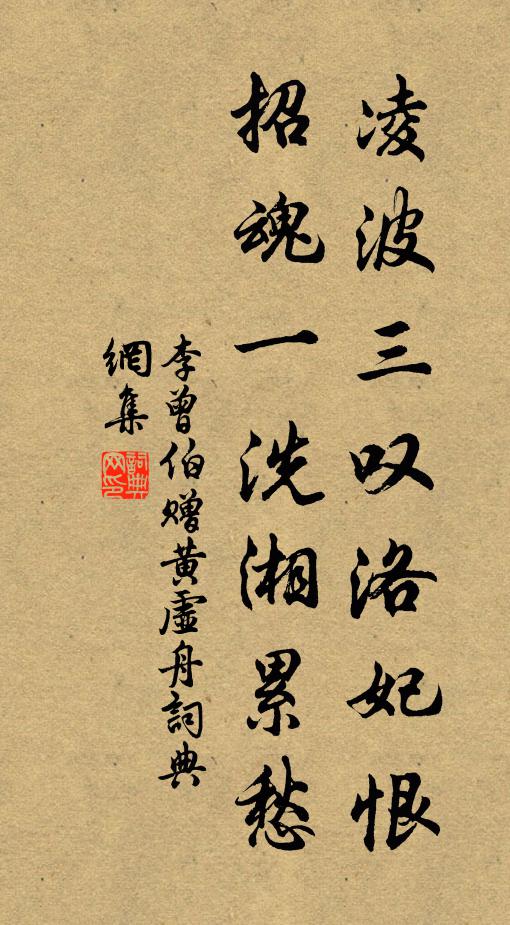 凌波三叹洛妃恨
招魂一洗湘累愁
李曾伯赠黄虚舟詞典
網集
詞典网印